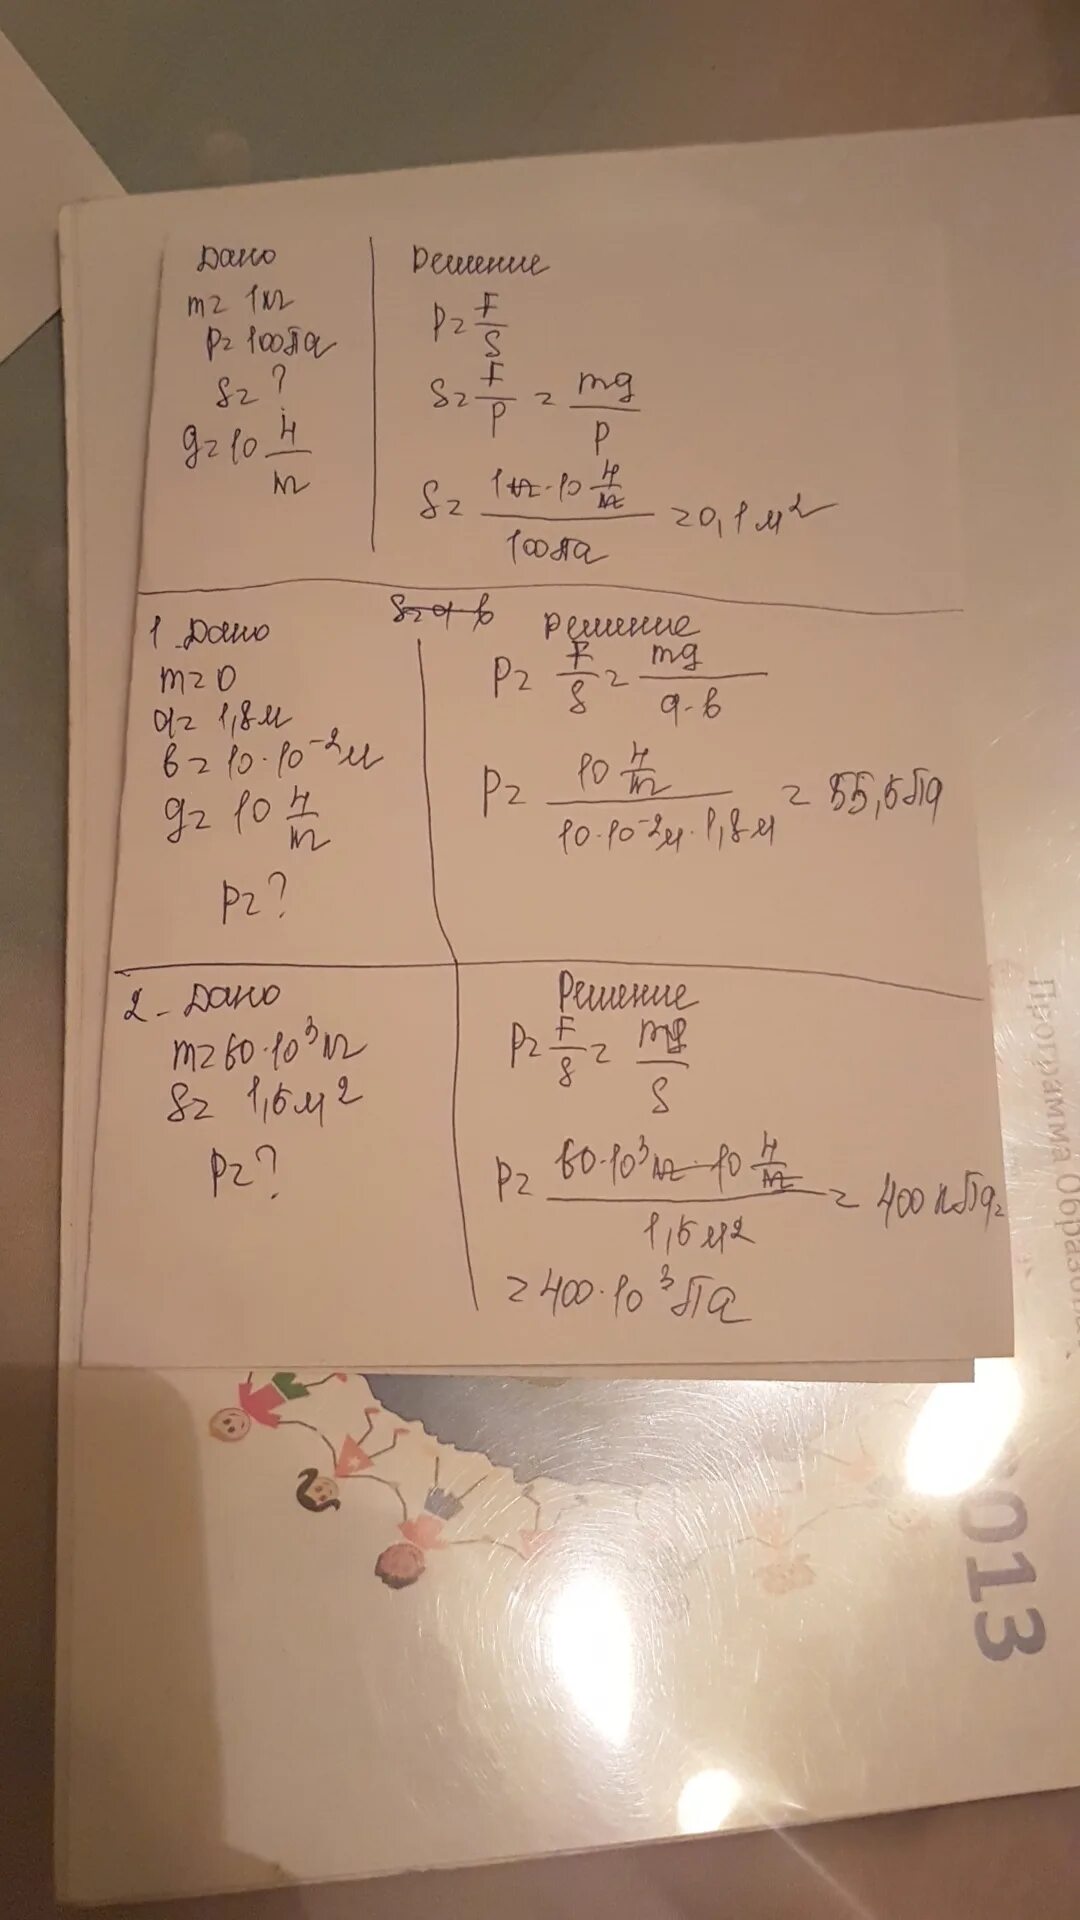 Дано
m = 1кг
p = 100Па
S = ?
g = 10 Н/кг
Решение
P = F/S
S = F/P = mg/P
S = 1кг · 10 Н/кг / 100Па = 0,1 м²
1 Дано
m = 0
a = 1,8м
b = 10·10⁻²м
g = 10 Н/кг
P = ?
S = a·b
Решение
P = F/S = mg/a·b
P = 10 Н/кг / 10·10⁻²м · 1,8м = 55,5Па
2 - Дано
m = 60·10³кг
S = 1,5м²
P = ?
Решение
P = F/S = mg/S
P = 60·10³кг · 10 Н/кг / 1,5м² = 400 кПа =
= 400·10³Па
Программа Образова
2013